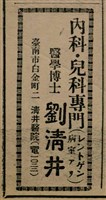 内科・兒科專門
レントゲン
病室アリ
醫學博士
劉清井
臺南市白金町二
清井醫院（電一〇三）